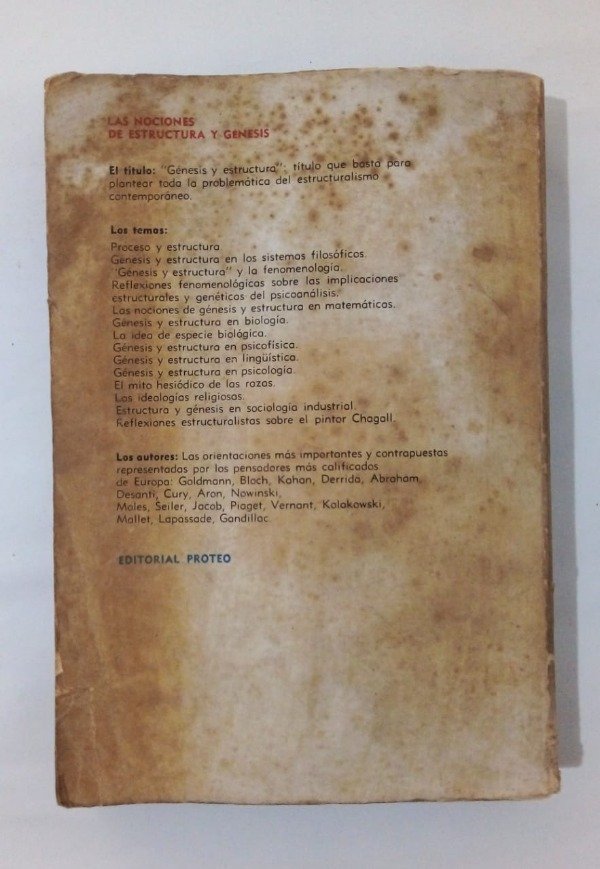 LAS NOCIONES
DE ESTRUCTURA Y GENESIS
El título: "Génesis y estructura": título que basta para
plantear toda la problemática del estructuralismo
contemporáneo.
Los temas:
Proceso y estructura.
Génesis y estructura en los sistemas filosóficos.
"Génesis y estructura" y la fenomenología.
Reflexiones fenomenológicas sobre las implicaciones
estructurales y genéticas del psicoanálisis.
Las nociones de génesis y estructura en matemáticas.
Génesis y estructura en biología.
La idea de especie biológica.
Génesis y estructura en psicofísica.
Génesis y estructura en lingüística.
Génesis y estructura en psicología.
El mito hesiódico de las razas.
Las ideologías religiosas.
Estructura y génesis en sociología industrial.
Reflexiones estructuralistas sobre el pintor Chagall.
Los autores: Las orientaciones más importantes y contrapuestas
representadas por los pensadores más calificados
de Europa: Goldmann, Bloch, Kahan, Derrida, Abraham,
Desanti, Cury, Aron, Nowinski,
Moles, Seiler, Jacob, Piaget, Vernant, Kolakowski,
Mallet, Lapassade, Gandillac.
EDITORIAL PROTEO